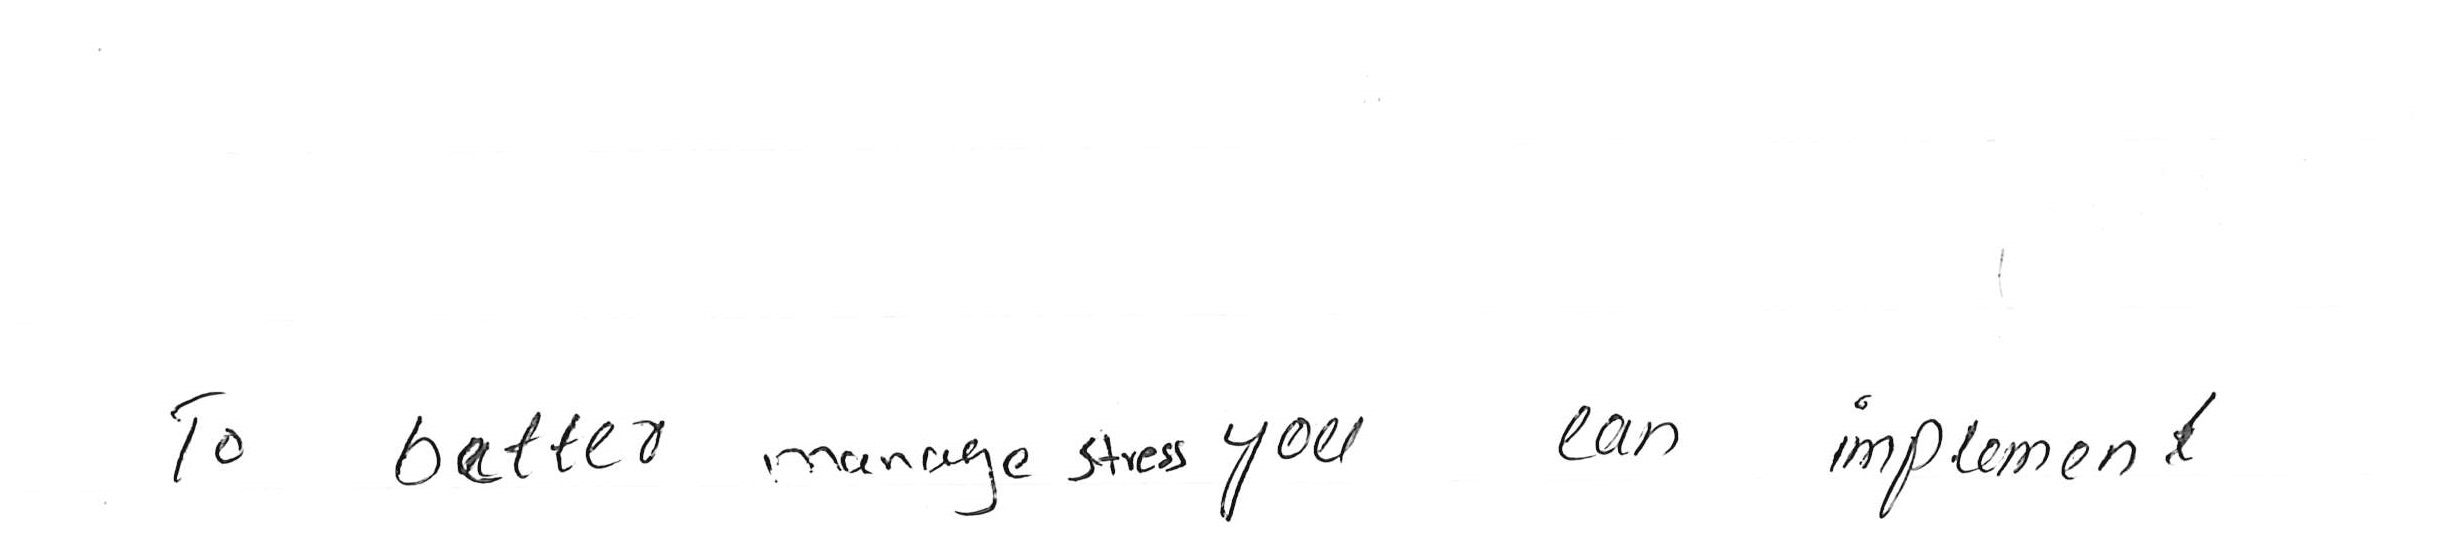 To better manage stress you can implement